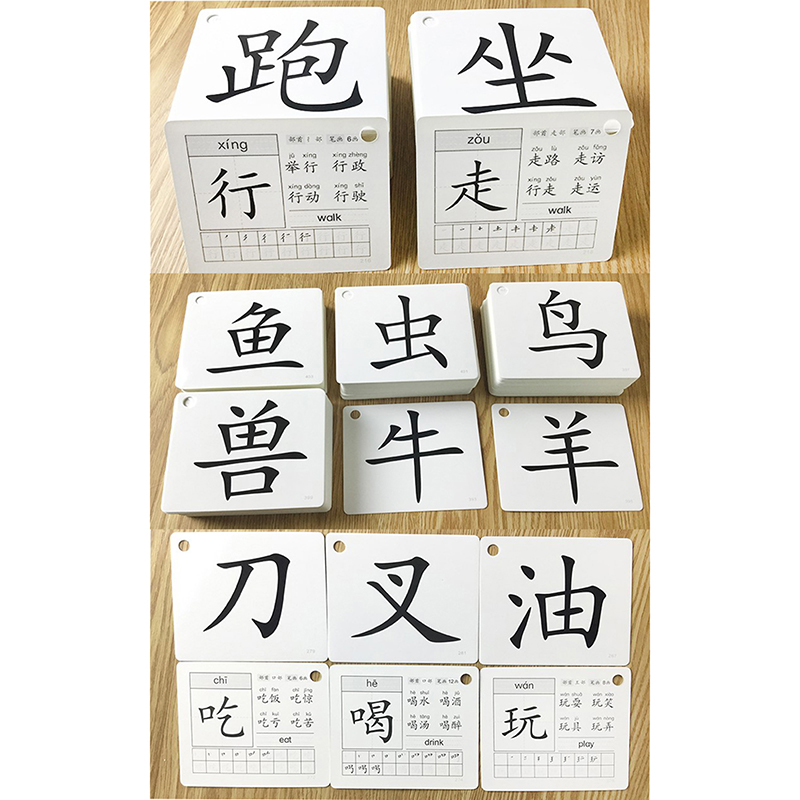 跑
坐
xíng
部首 彳部 笔画 6画
jǔ xíng xíng zhèng
举行 行政
行
xíng dòng xíng shǐ
行动 行驶
walk
zǒu
部首 走部 笔画 7画
zǒu lù zǒu fǎng
走路 走访
走
xíng zǒu zǒu yùn
行走 走运
walk
鱼
虫
鸟
兽
牛
羊
刀
叉
油
chī
部首 口部 笔画 6画
chī fàn chī jīng
吃饭 吃惊
吃
chī kuī chī kǔ
吃亏 吃苦
eat
hē
部首 口部 笔画 12画
hē shuǐ hē jiǔ
喝水 喝酒
喝
hē tāng hē zuì
喝汤 喝醉
drink
wán
部首 王部 笔画 8画
wán shuǎ wán xiào
玩耍 玩笑
玩
wán jù wán nòng
玩具 玩弄
play